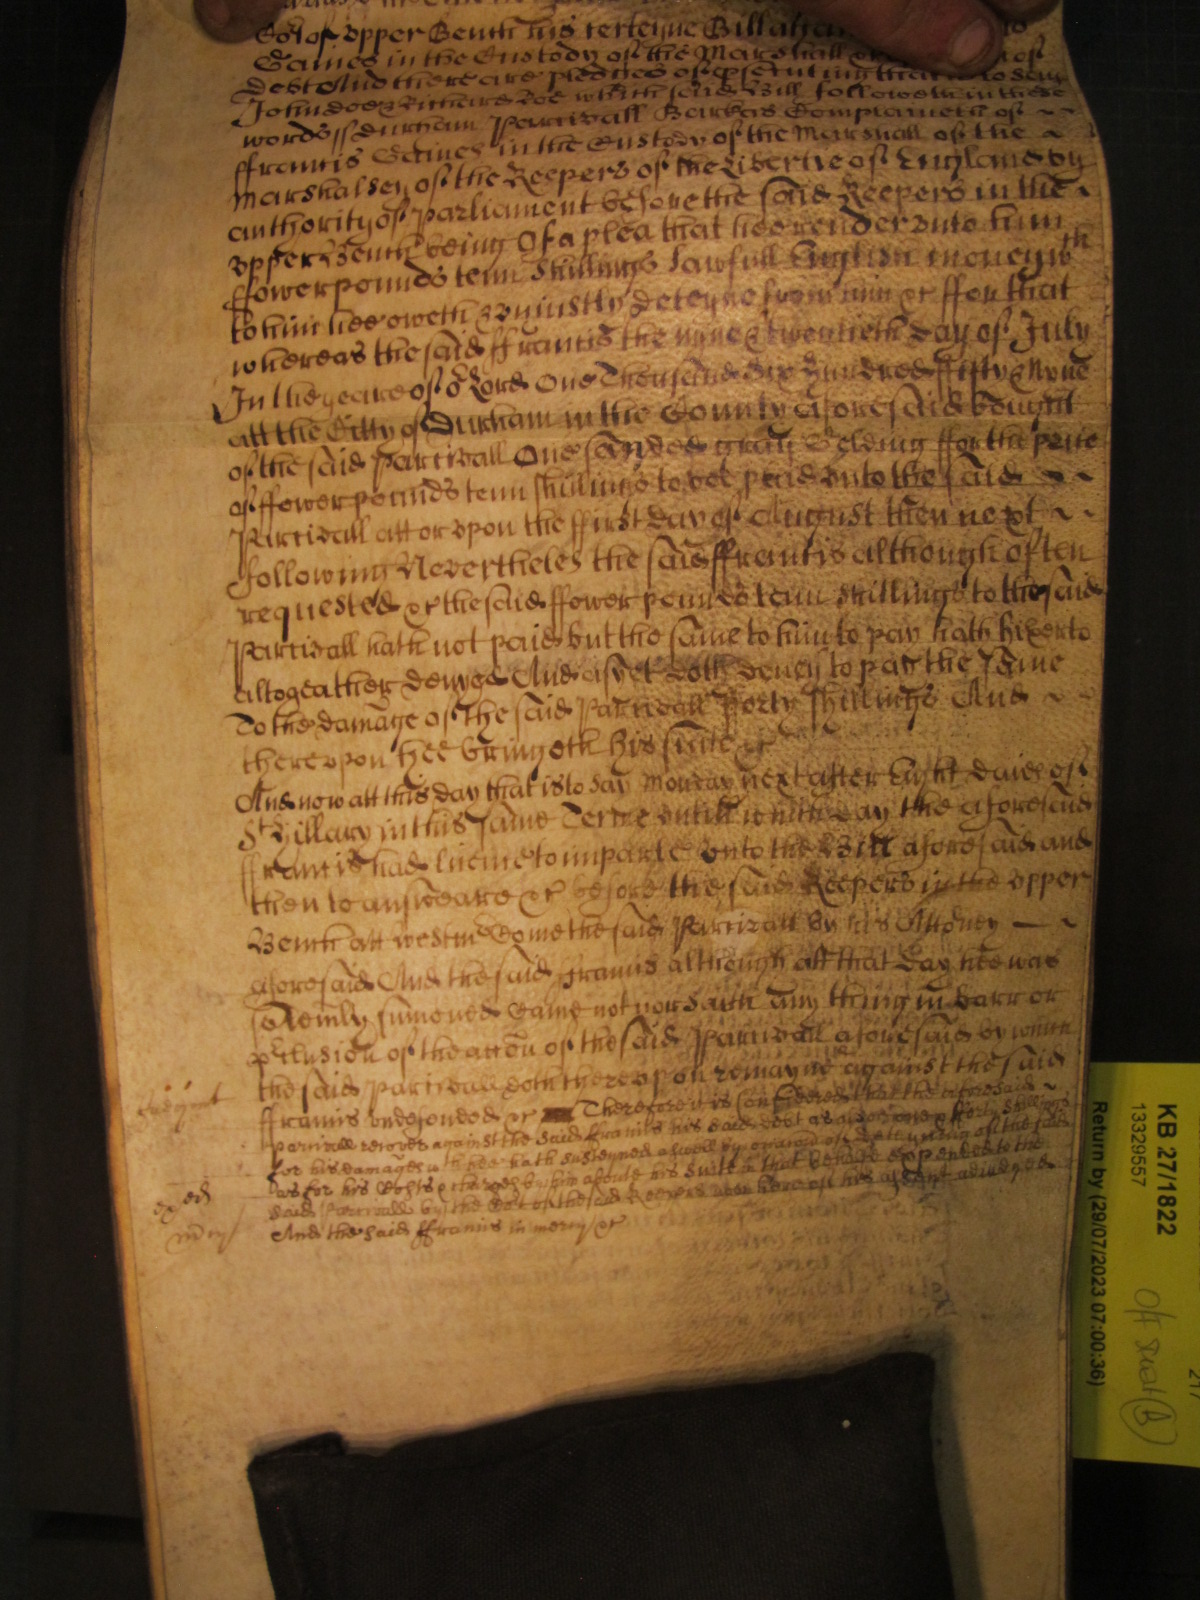 of upper Bench his certeine Bill against
Gaines in the Custody of the Marshall of
debt And there are pledges of prosecuting that is to say
John doe & Richard Roe which said Bill followeth in these
words ss Durham Percivall Complaineth of
ffrancis Gaines in the Custody of the Marshall of the
Marshalsey of the Keepers of the Libertie of England by
authority of Parliament before the said Keepers in the
upper Bench being Of a plea that hee render unto him
ffower pounds tenn shillings lawfull English money wch
to him hee oweth & uniustly deteyneth from him &c ffor that
whereas the said ffrancis the nyne & twentieth day of July
In the yeare of or Lord One Thousand Six Hundred ffifty & Nyne
att the Citty of Durham in the County aforesaid bought
of the said Percivall One gray Gelding ffor the price
of ffower pounds tenn shillings to bee paid unto the said
Percivall att or upon the ffirst day of August then next
following Neverthelesse the said ffrancis although often
requested &c the said ffower pounds tenn shillings to the said
Percivall hath not paid but the same to him to pay hath hitherto
altogeather denyed And as yet doth deney to pay the same
To the damage of the said Percivall fforty shillings And
thereupon hee bringeth his suite &c
And now att this day that is to say Monday next after Eight daies of
St Hillary in this same Terme untill which day the aforesaid
ffrancis had licence to imparle unto the Bill aforesaid and
then to answeare &c before the said Keepers in the upper
Bench att westmr Come the said Percivall by his Attorney
aforesaid And the said francis although att that day hee was
solemly sumoned Came not nor saith any thing in barr or
preclusion of the accon of the said Percivall aforesaid by which
the said Percivall doth thereupon remayne against the said
Judgmt
ffrancis undefended &c Therefore it is considered that the aforesaid
Percivall recover against the said ffrancis his said debt and fforty shillings
for his damages wch hee hath susteyned aswell by occasion of deteyning of the said debt
as for his Costs & charges by him aboute his suite in that behalfe expended to the
said Percivall by the Court of the said Keepers now here of his assent adiudged
And the said ffrancis in mercy &c
mercy
KB 27/1822
13329557
Return by (29/07/2023 07:00:36)